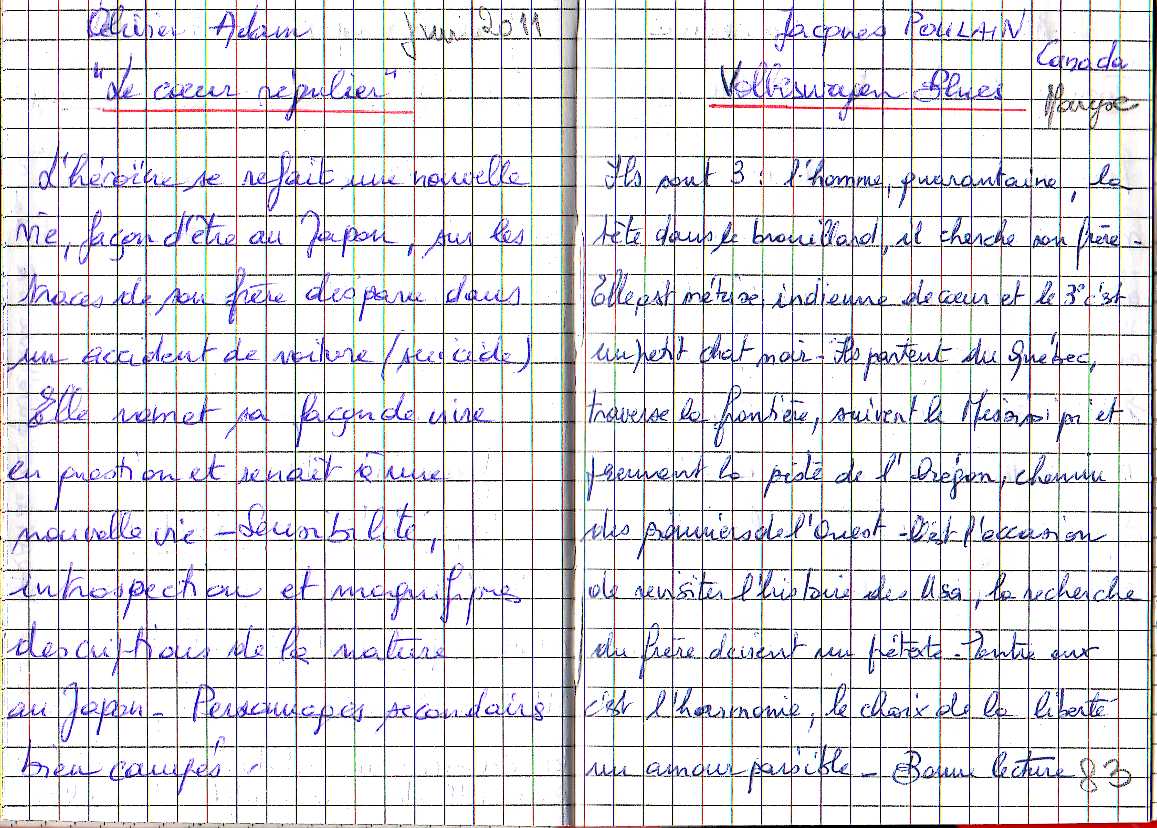 Olivier Adam Juin 2011
"Le cœur régulier"
L'héroïne se refait une nouvelle
vie, façon d'être au Japon, sur les
traces de son frère disparu dans
un accident de voiture (suicide)
Elle remet sa façon de vivre
en question et renaît à une
nouvelle vie - Sensibilité,
introspection et magnifiques
descriptions de la nature
au Japon - Personnages secondairs
bien campés.
Jacques POULAIN
Canada
Volkswagen Blues Maryse
Ils sont 3 : l'homme, quarantaine, la
tête dans le brouillard, il cherche son frère -
Elle est métisse, indienne de cœur et le 3° c'est
un petit chat noir - Ils partent du Québec,
traverse la frontière, suivent le Missisipi et
prennent la piste de l'Orégon, chemin
des pionniers de l'Ouest - C'est l'occasion
de revisiter l'histoire des Usa, la recherche
du frère devient un prétexte - Entre eux
c'est l'harmonie, le choix de la liberté
un amour paisible - Bonne lecture 83